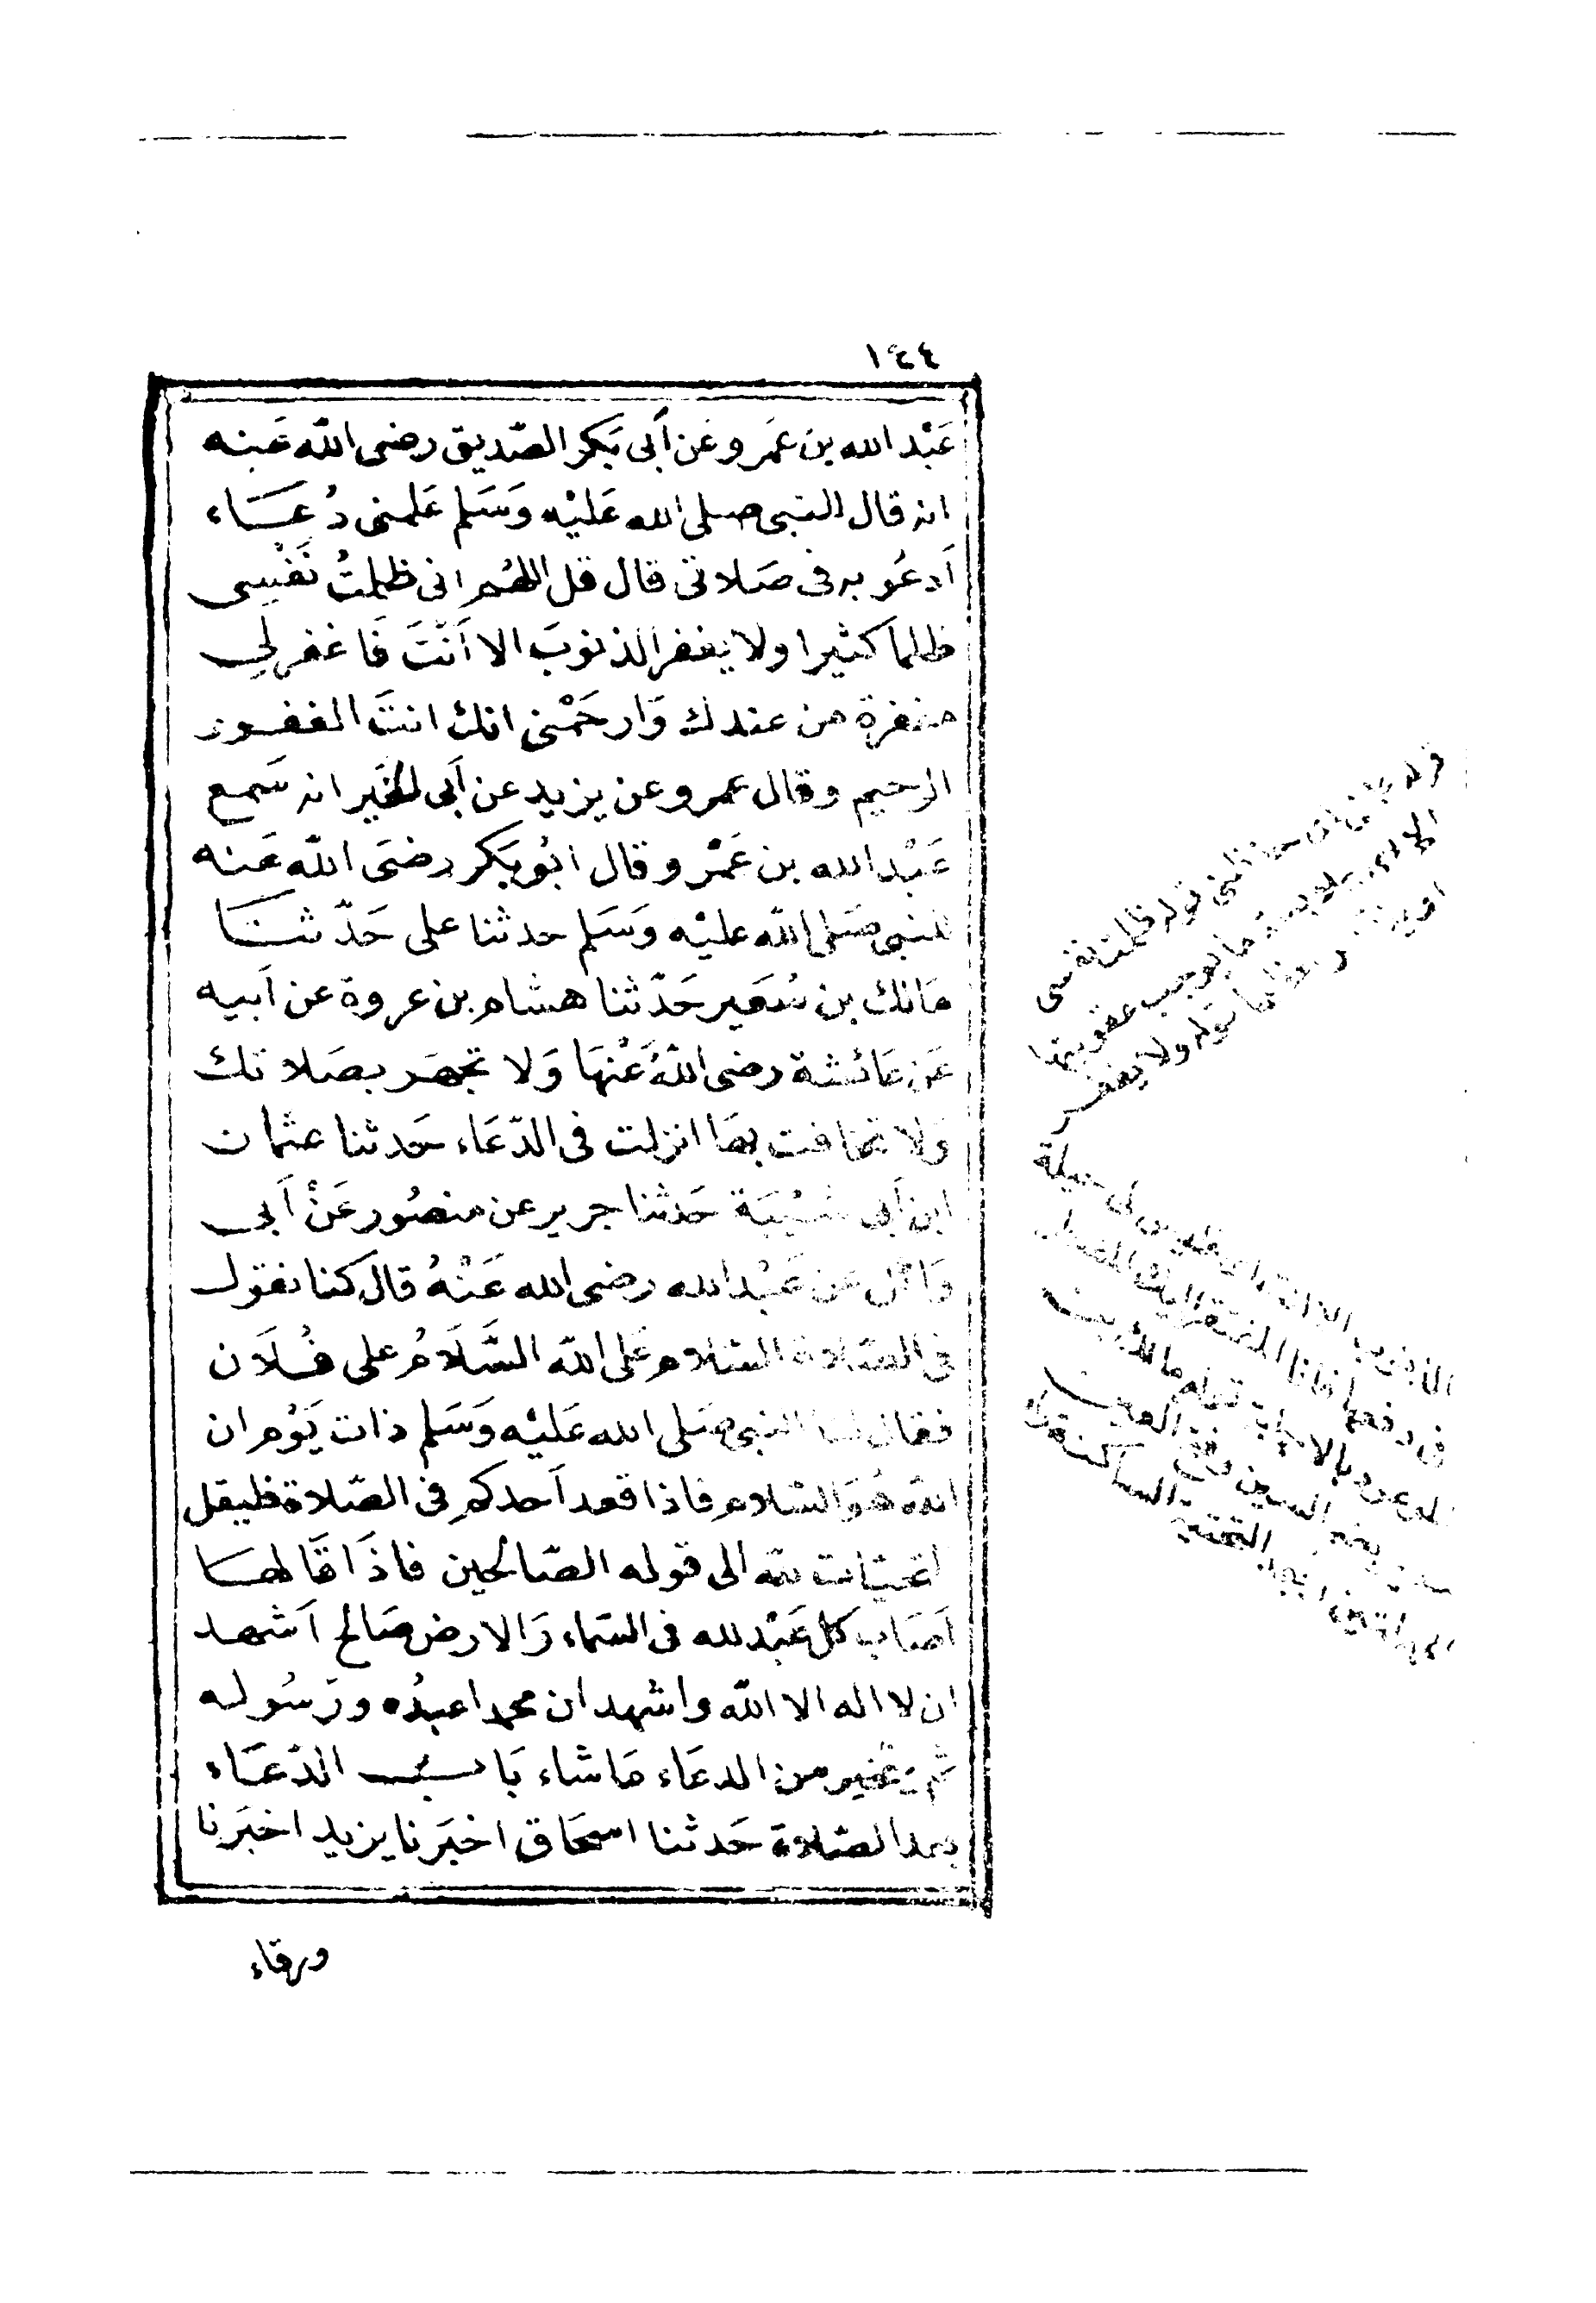 ١٤٤
عَبْد الله بن عَمَرو عَن أَبى بَكر الصّديق رضى الله عَنه
انه قال للنبى صلى الله عَليْه وَسَلم عَلمنى دُعَاء
أَدعُو به فى صَلاتى قال قل اللهُم انى ظلمتُ نَفْسِى
ظلماً كثيرا ولا يغفر الذنوبَ الا أَنْتَ فَاغفر لِى
مغفرة من عندك وَارحَمْنى انك انتَ الغفور
الرحيم وقال عمرو عن يزيد عن أَبى الخَير انه سَمع
عَبْد الله بن عَمْرو قال ابُو بَكر رضىَ الله عَنه
للنبى صَلى الله عليْه وَسَلم حدثنا على حَدّثنَا
مَالك بن سُعَير حَدّثنا هشام بن عروة عن أَبيه
عَن عَائشة رضى اللهُ عَنْهَا وَلا تجهَر بصَلاتك
وَلا تخافت بهَا انزلت فى الدّعَاء حَدثنا عثمان
ابن أَبى شَيْبَة حَدثنا جرير عن منصُور عَنْ أَبى
وَائل عَن عَبْد الله رضى الله عَنْهُ قال كنا نقول
فى الصّلاة السّلام عَلى الله السَّلَامُ على فُلَان
فقال لنا النبى صَلى الله عَليْه وَسَلم ذات يَوْم ان
الله هُوَ السّلام فاذا قعد أَحدكم فى الصّلاة فليقل
التحيّات لله الى قوله الصّالحين فاذَا قَالهَا
أَصَاب كل عَبْد لله فى السّماء وَالارض صَالح أَشهد
ان لا اله الا الله واشهد ان محمدا عبدُه ورَسُوله
ثم يتخير من الدعَاء مَا شاء بَابُ الدّعَاء
بعد الصّلاة حَدثنا اسحَاق اخبَرنا يزيد اخبَرنا
ورقاء
قوله ظلمت نفسى
ما يوجب عقوبتها
قوله ولا يغفر